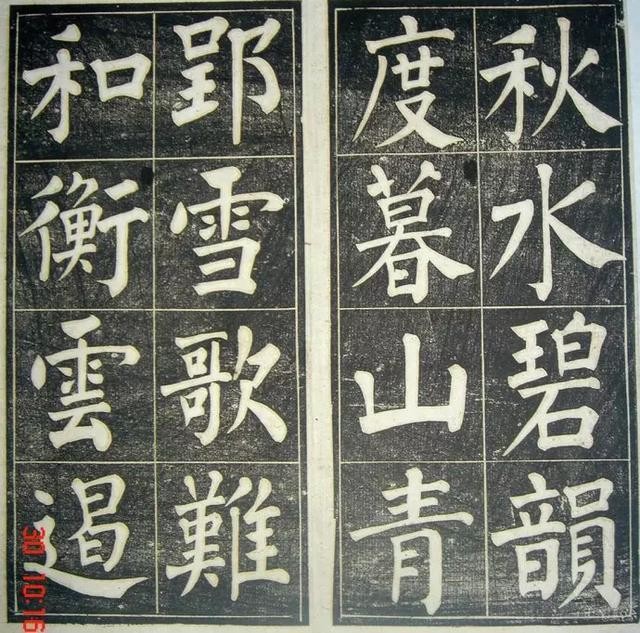 秋水碧韻
度暮山青
郢雪歌難
和衡雲遏
30 10:16